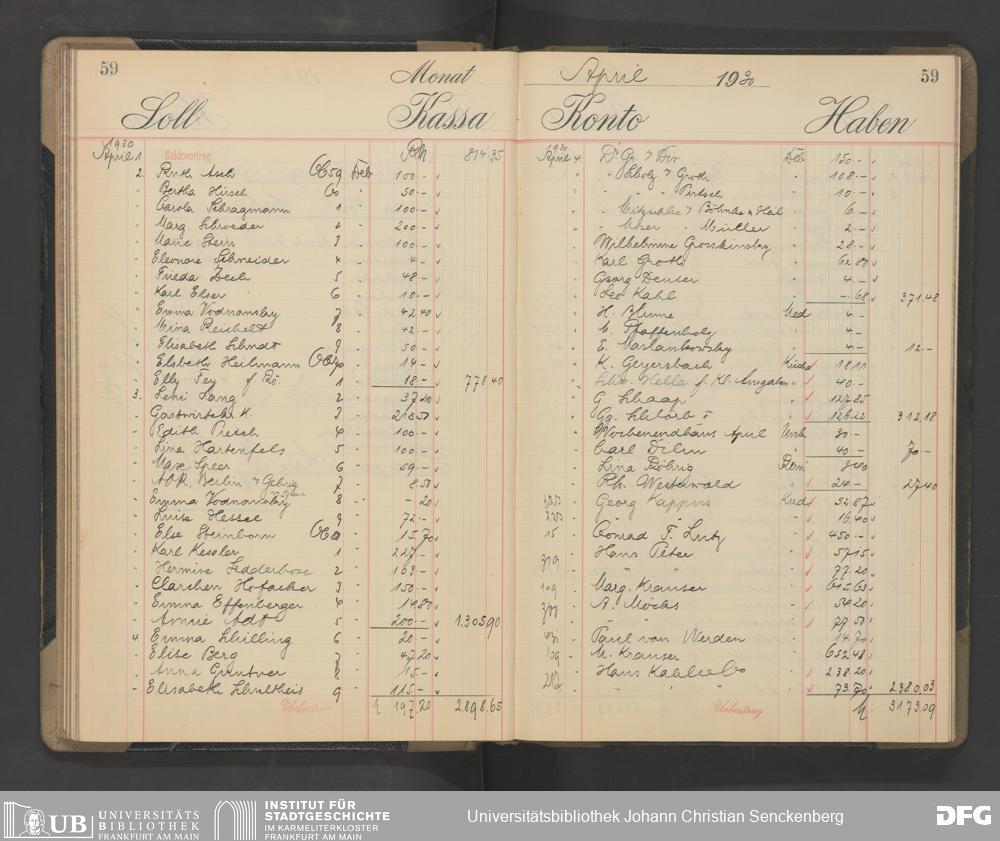 59
Monat
April 1930
59
Soll
Kassa
Konto
Haben
1930
April 1 Saldovortrag RM 814.35
2. Ruth Asch 59 Deb 100.-
" Bertha Hirsch 60 50.-
" Carola Schragmann 1 100.-
" Marg. Schroeder 2 200.-
" Marie Stern 3 100.-
" Eleonore Schneider 4 4.-
" Frieda Zech 5 48.-
" Karl Elser 6 10.-
" Emma Vodnansky 7 42.40
" Mina Reichelt 8 42.-
" Elisabeth Schmdt 9 50.-
" Elsbeth Heilmann 70 14.-
" Elly Fey 1 18.- 778.40
3. Leni Lang 2 37.20
" Gastwirtsch. K. 3 218.50
" Edith Pietsch 4 100.-
" Lina Hartenfels 5 100.-
" Max Speer 6 59.-
" Berlin 7 8.50
" Emma Vodnansky 8 -.20
" Luise Hessel 9 72.-
" Else Steinborn 15.70
" Karl Kessler 1 227.-
" Hermine Ledderbose 2 163.-
" Clärchen Hofacker 3 150.-
" Emma Effenberger 4 14.80
" Annie Adt 5 200.- 1.305.90
4 Emma Schilling 6 20.-
" Elise Berg 7 47.20
" Anna Guntver 8 15.-
" Elisabeth Schultheis 9 115.-
Uebertrag 197.20 2898.65
1930
April 4 Deb 150.-
" Scholz Groth 108.-
" 10.-
" Böhnke 6.-
" Müller 2.-
Wilhelmine Grosskinsky 28.-
Karl Groth 62.80
Georg Denser 4.-
Leo Kahl -.68 371.48
H. Blume Med 4.-
Pfaffenholz 4.-
E. Maslankowsky 4.- 12.-
K. Geyersbach Küche 18.11
Hella f. Kl. Ausgaben 40.-
G Schaap 127.85
126.22 312.18
Wochenendhaus April Unk 30.-
Carl Dilm 40.- 70.-
Lina Röhrig 7.40
Rh. Westerwald 20.- 27.40
Georg Kappus Kred 52.87
16.40
15 Conrad F. Lutz 450.-
319 Hans Peter 57.15
" " 77.20
109 Marg. Krauser 615.63
A. Mochs 54.20
77.50
Paul van Werden 14.70
109 M. Krauser 652.48
Hans Kahl 238.20
73.70 2380.03
Uebertrag 3173.09
UB UNIVERSITÄTS
BIBLIOTHEK
FRANKFURT AM MAIN
INSTITUT FÜR
STADTGESCHICHTE
IM KARMELITERKLOSTER
FRANKFURT AM MAIN
Universitätsbibliothek Johann Christian Senckenberg
DFG